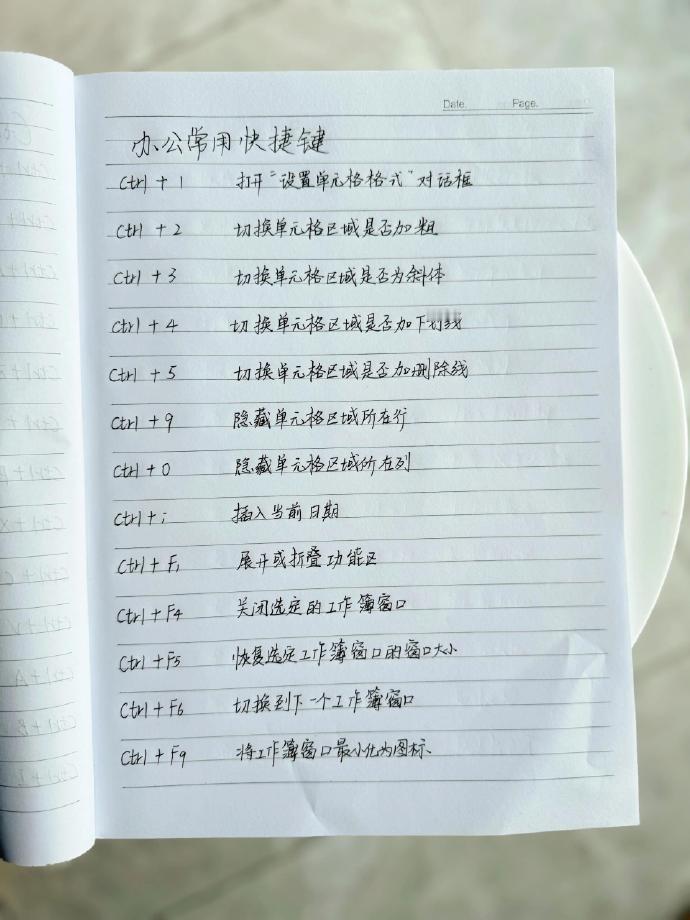 Date. Page.
办公常用快捷键
Ctrl + 1 打开“设置单元格格式”对话框
Ctrl + 2 切换单元格区域是否加粗
Ctrl + 3 切换单元格区域是否为斜体
Ctrl + 4 切换单元格区域是否加下划线
Ctrl + 5 切换单元格区域是否加删除线
Ctrl + 9 隐藏单元格区域所在行
Ctrl + 0 隐藏单元格区域所在列
Ctrl + ; 插入当前日期
Ctrl + F1 展开或折叠功能区
Ctrl + F4 关闭选定的工作簿窗口
Ctrl + F5 恢复选定工作簿窗口的窗口大小
Ctrl + F6 切换到下一个工作簿窗口
Ctrl + F9 将工作簿窗口最小化为图标.